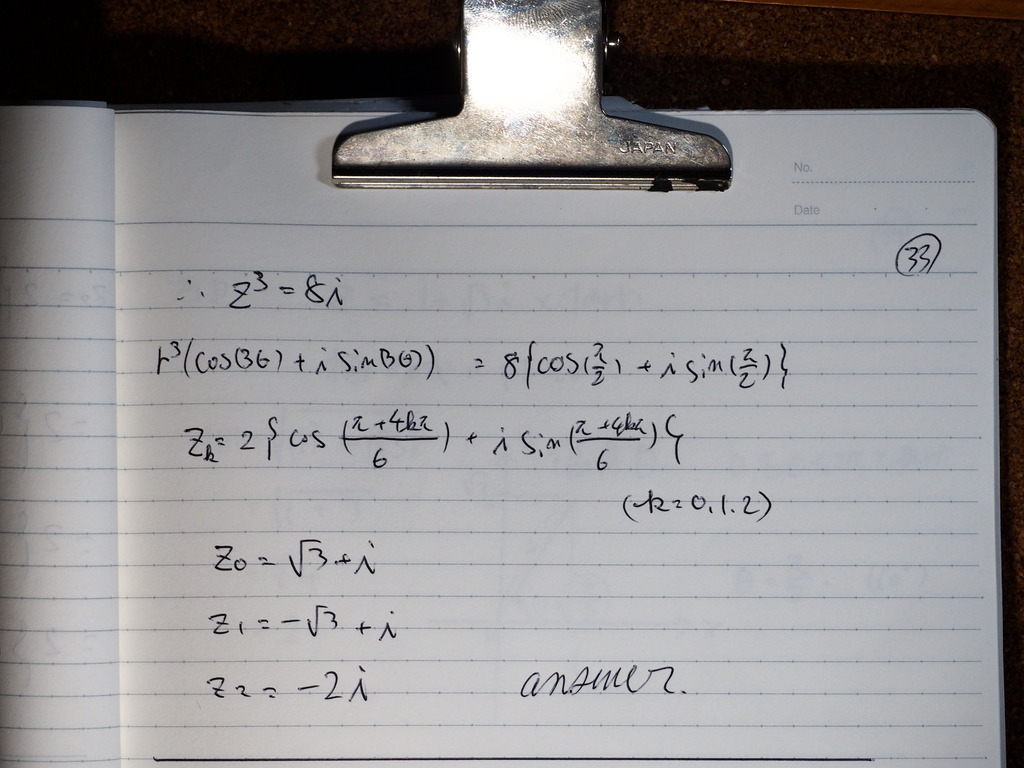 JAPAN
No.
Date
33
∴ z³ = 8i
r³(cos(3θ) + i sin(3θ)) = 8{cos(π/2) + i sin(π/2)}
Zk = 2{cos((π+4kπ)/6) + i sin((π+4kπ)/6)}
(k=0.1.2)
Z0 = √3 + i
Z1 = -√3 + i
Z2 = -2i answer.